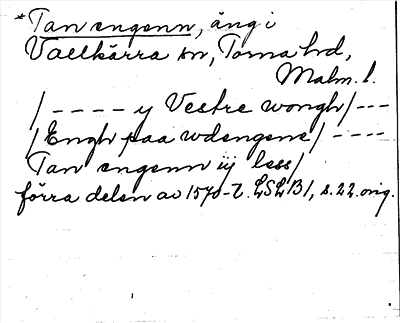 *Tan engenn, äng i
Vallkärra sn, Torna hd,
Malm. l.
/---- y Vestre wongh/---
/Engh paa wdengene/----
Tan engenn iij less/
förra delen av 1570-t. LSLB1, s. 22. orig.